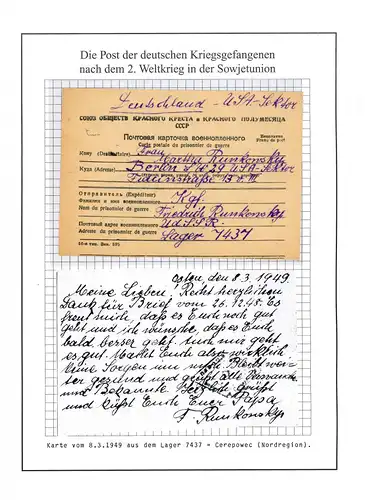 Die Post der deutschen Kriegsgefangenen
nach dem 2. Weltkrieg in der Sowjetunion
Deutschland - USA-Sektor
СОЮЗ ОБЩЕСТВ КРАСНОГО КРЕСТА и КРАСНОГО ПОЛУМЕСЯЦА
СССР
Почтовая карточка военнопленного
Carte postale du prisonnier de guerre
Бесплатно
Franc de port
Кому (Destinataire) Frau
Martha Runkowsky
Куда (Adresse) Berlin 29 USA-Sektor
Отправитель (Expéditeur) Kgf.
Фамилия и имя военнопленного
Nom du prisonnier de guerre Friedrich Runkowsky
Почтовый адрес военнопленного UdSSR
Adresse du prisonnier de guerre Lager 7437
Osten, den 8.3.1949.
Meine Lieben! Recht herzlichen
Dank für Brief vom 26.12.48. Es
freut mich, daß es Euch noch gut
geht und ich wünsche, daß es Euch
bald besser geht. Auch mir geht
es gut. Macht Euch also wirklich
keine Sorgen um mich. Bleibt wei-
ter gesund und grüßt alle Verwandte
und Bekannte. Herzlichst grüßt
und küßt Euch Euer Papa
F. Runkowsky
Karte vom 8.3.1949 aus dem Lager 7437 = Cerepowec (Nordregion).